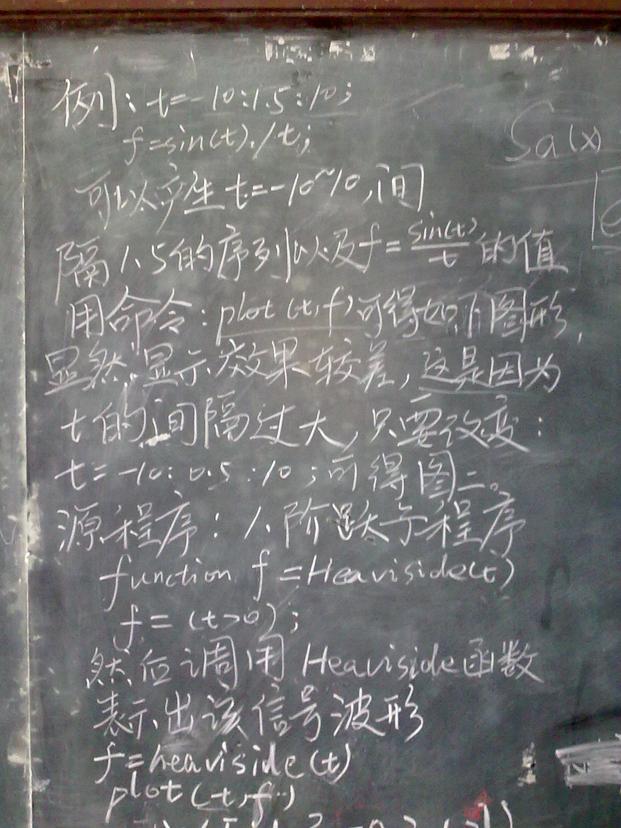 例: t=-10:1.5:10;
f=sin(t)./t;
Sa(x)
可以产生t=-10~10,间
隔1.5的序列以及f=sin(t)/t的值
用命令:plot(t,f)可得如下图形,
显然显示效果较差,这是因为
t的间隔过大,只要改变:
t=-10:0.5:10;可得图二。
源程序:1.阶跃子程序
function f=Heaviside(t)
f=(t>0);
然后调用Heaviside函数
表示出该信号波形
f=heaviside(t)
plot(t,f)